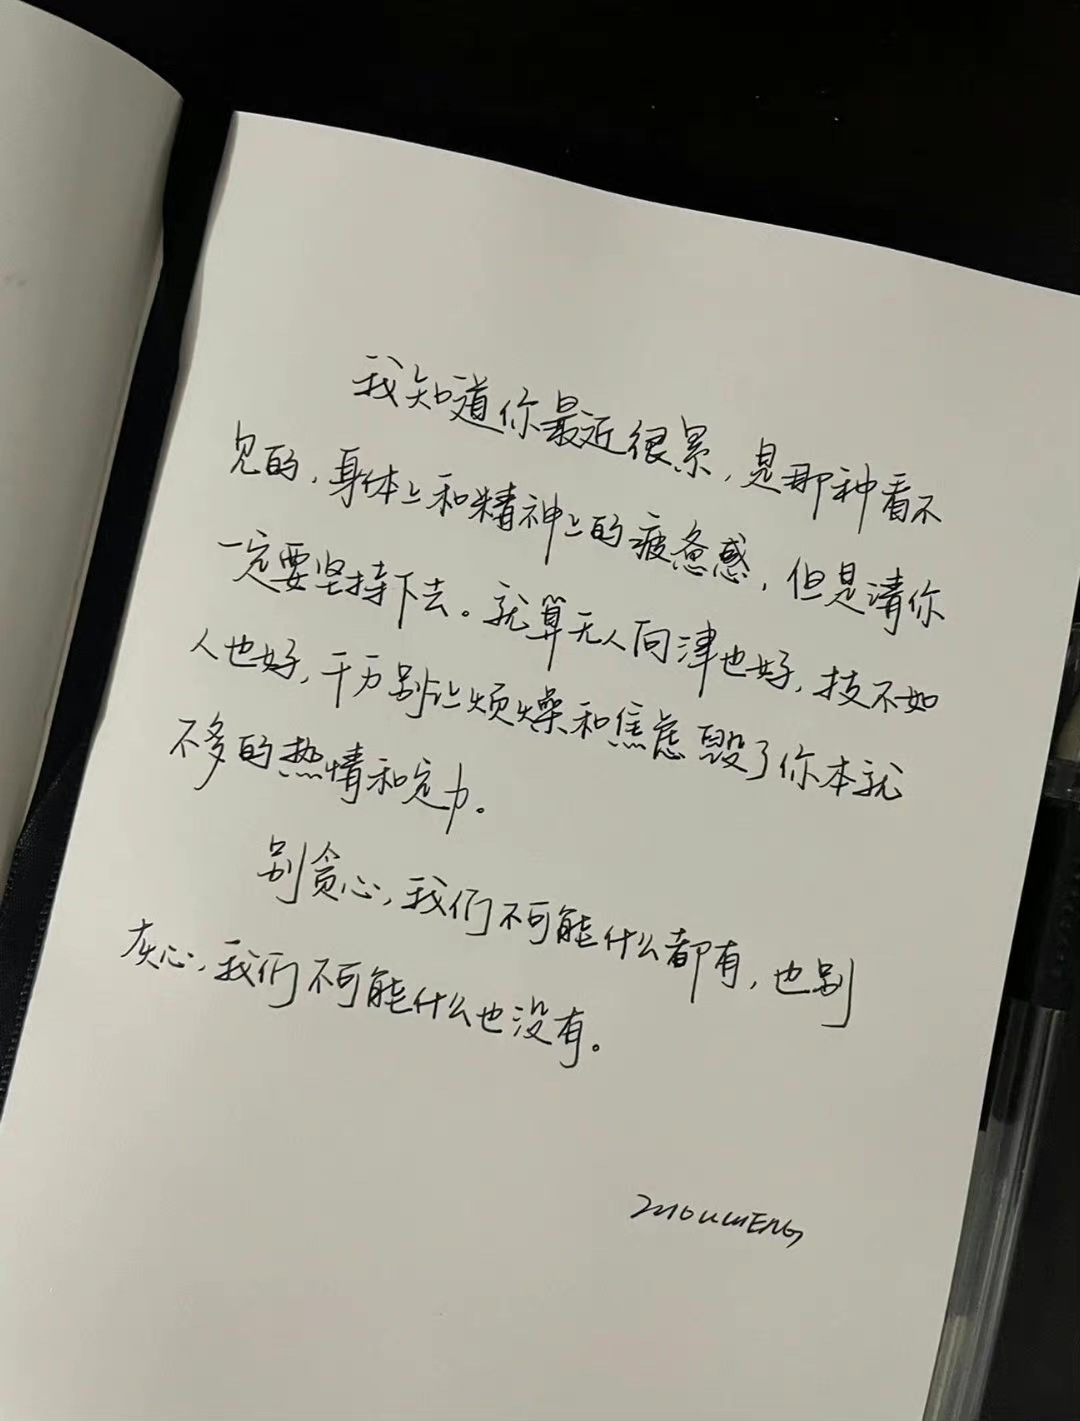 我知道你最近很累，是那种看不
见的，身体上和精神上的疲惫感，但是请你
一定要坚持下去。就算无人问津也好，技不如
人也好，千万别让烦燥和焦虑毁了你本就
不多的热情和定力。
别贪心，我们不可能什么都有，也别
灰心，我们不可能什么也没有。